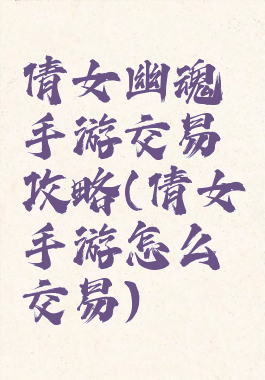 倩女幽魂
手游交易
攻略(倩女
手游怎么
交易)